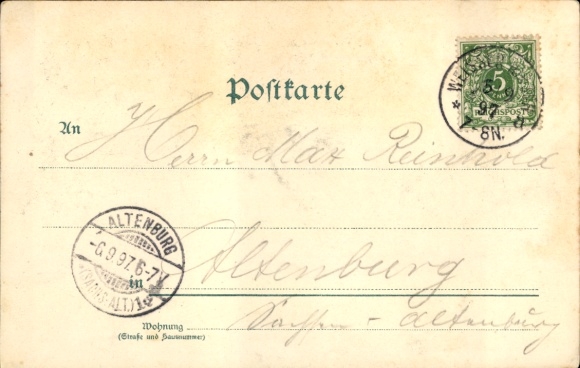 Postkarte
5
REICHSPOST
5 9
97
7-8N.
An
Herrn Max Reinhold
ALTENBURG
-6.9.97.6-7V
in Altenburg
Wohnung
(Straße und Hausnummer)
Sachsen-Altenburg